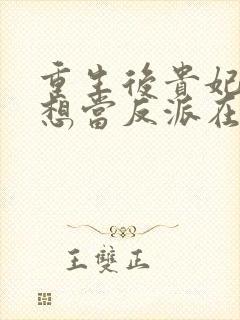 重生後貴妃
想當反派在
王雙正